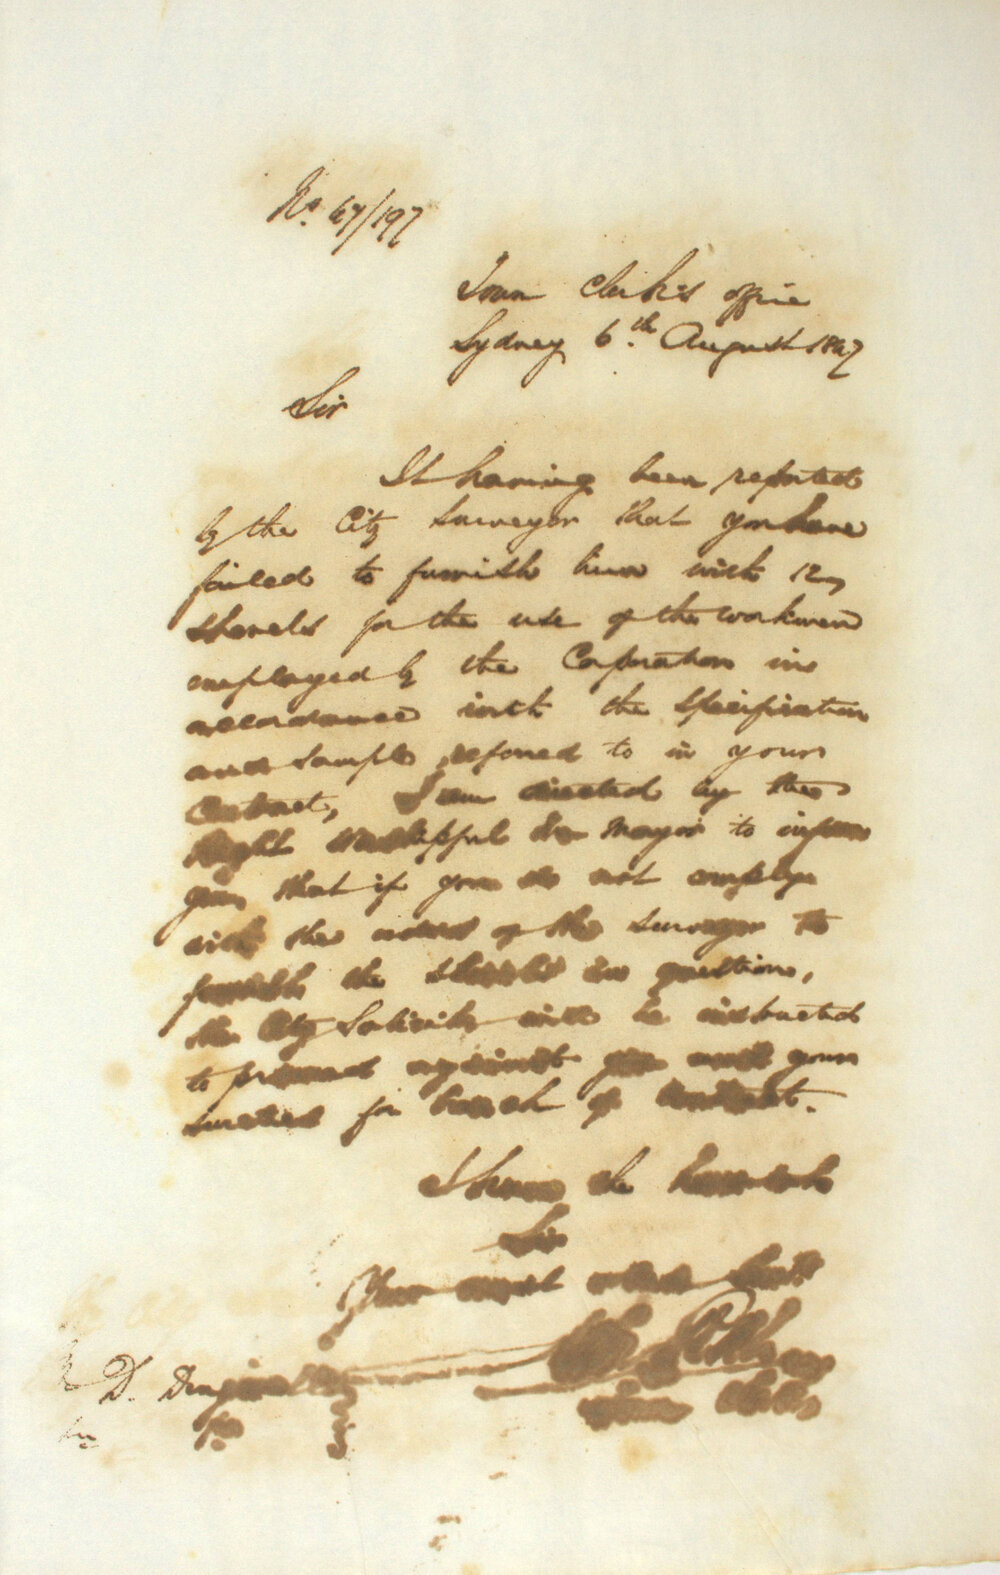 No. 47/197
Town Clerk's office
Sydney 6th August 1847
Sir
It having been reported
by the City Surveyor that you have
failed to furnish him with 12
shovels for the use of the workmen
employed by the Corporation in
accordance with the Specification
and Sample referred to in your
Contract, I am directed by the
Right Worshipful the Mayor to inform
you that if you do not comply
with the orders of the Surveyor to
furnish the shovels in question,
the City Solicitor will be instructed
to proceed against you and your
sureties for breach of contract.
I have the honor to be
Sir
Your most obedt Servt
Town Clerk
D.